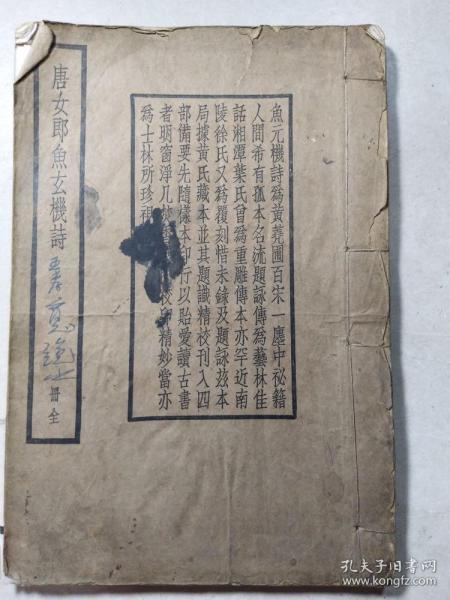 魚元機詩爲黃蕘圃百宋一廛中祕籍
人間希有孤本名流題詠傳爲藝林佳
話湘潭葉氏曾爲重雕傳本亦罕近南
陵徐氏又爲覆刻惜未錄及題詠茲本
局據黃氏藏本並其題識精校刊入四
部備要先隨樣本印行以貽愛讀古書
者明窗淨几校印精妙當亦
爲士林所珍
唐女郎魚玄機詩
冊全
孔夫子旧书网
www.kongfz.com